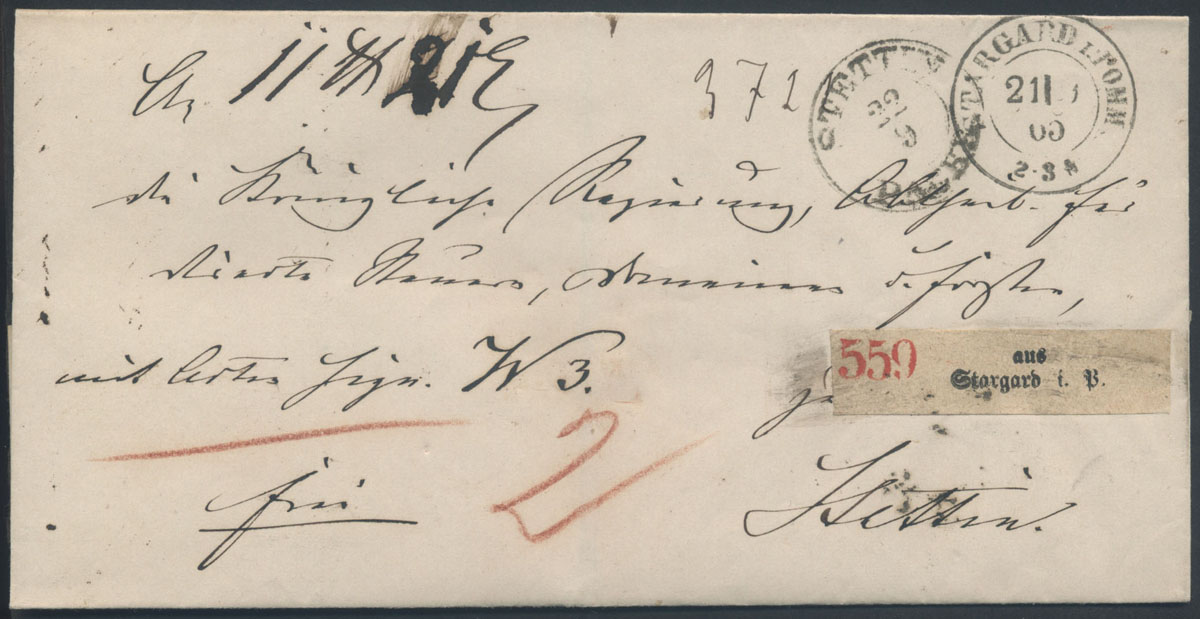 An
372
STETTIN
22 9
STARGARD i. POMM.
21 9
65
2-3 N
die Königliche Regierung, Abtheil. für
directe Steuern, Domainen u. Forsten,
mit Sign. W 3.
559 aus
Stargard i. P.
zu
frei
2
Stettin.